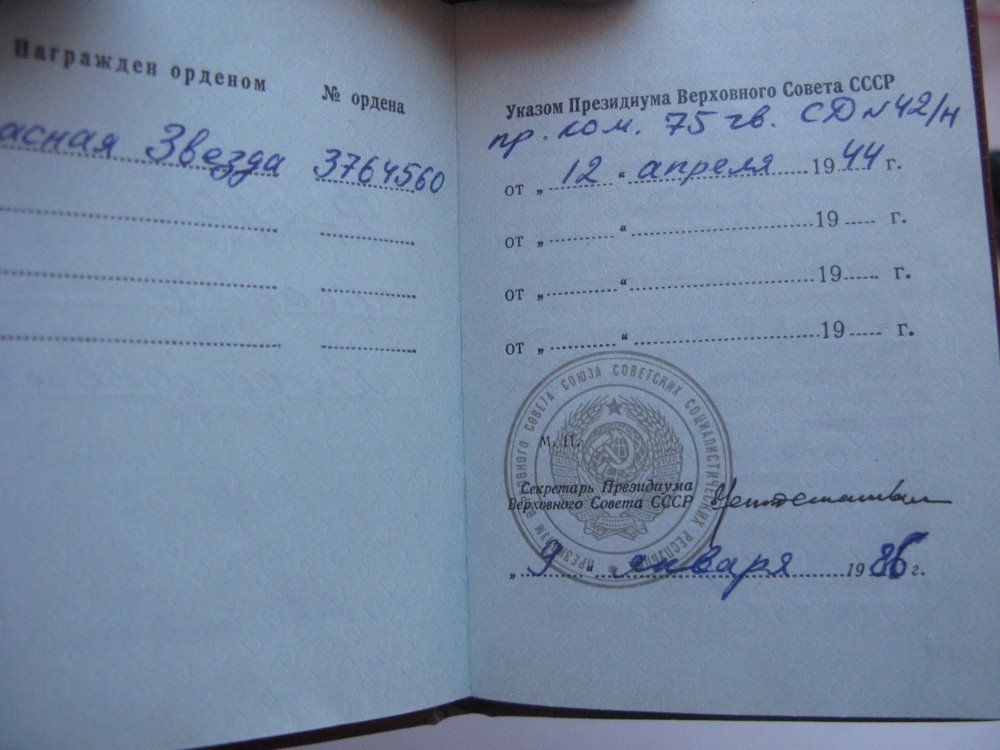 Награжден орденом
№ ордена
асная Звезда 3764560
Указом Президиума Верховного Совета СССР
пр. ком. 75 гв. СД №42/н
от „ 12 “ апреля 1944 г.
от „ “ 19 г.
от „ “ 19 г.
от „ “ 19 г.
ПРЕЗИДИУМ ВЕРХОВНОГО СОВЕТА СОЮЗА СОВЕТСКИХ СОЦИАЛИСТИЧЕСКИХ РЕСПУБЛИК
М. П.
Секретарь Президиума
Верховного Совета СССР
„ 9 “ января 1986 г.